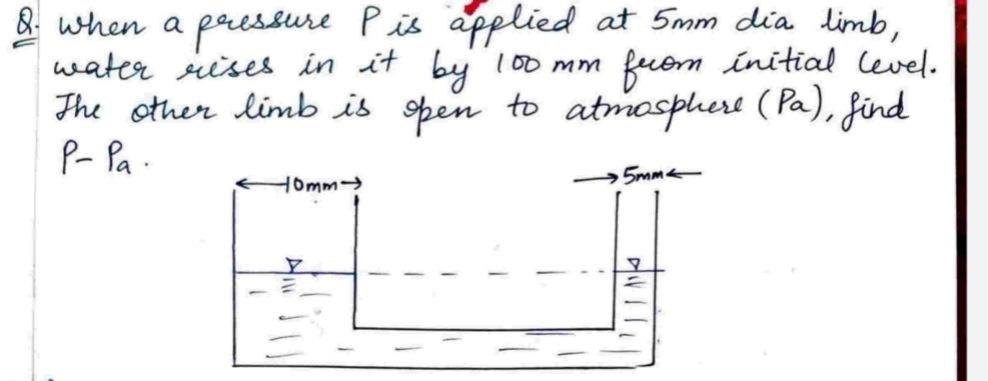 Q. When a pressure P is applied at 5mm dia limb,
water rises in it by 100 mm from initial level.
The other limb is open to atmosphere (Pa), find
P- Pa.
10mm
5mm